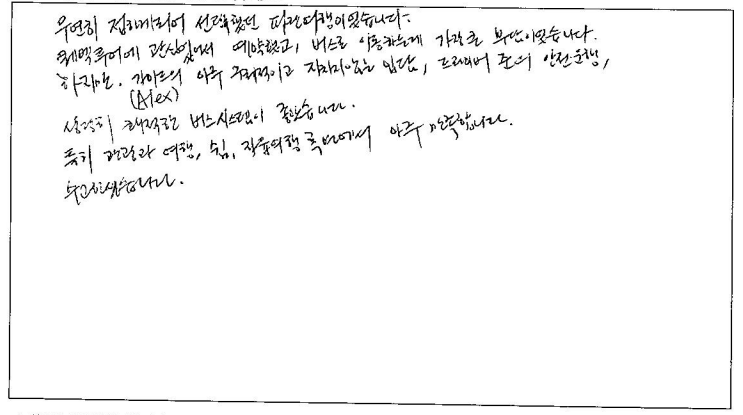 우연히 접하게되어 선택했던 퍼킨여행이었습니다.
퀘벡투어에 관심있어서 예약했고, 버스로 이동하는게 가장 큰 부담이었습니다.
하지만, 가이드의 아주 지적이고 지치지않는 입담, 드라이버 존의 안전운행,
(Alex)
상당히 쾌적한 버스시스템이 좋았습니다.
특히 관광과 여행, 쉼, 자유여행 측면에서 아주 만족합니다.
수고하셨습니다.